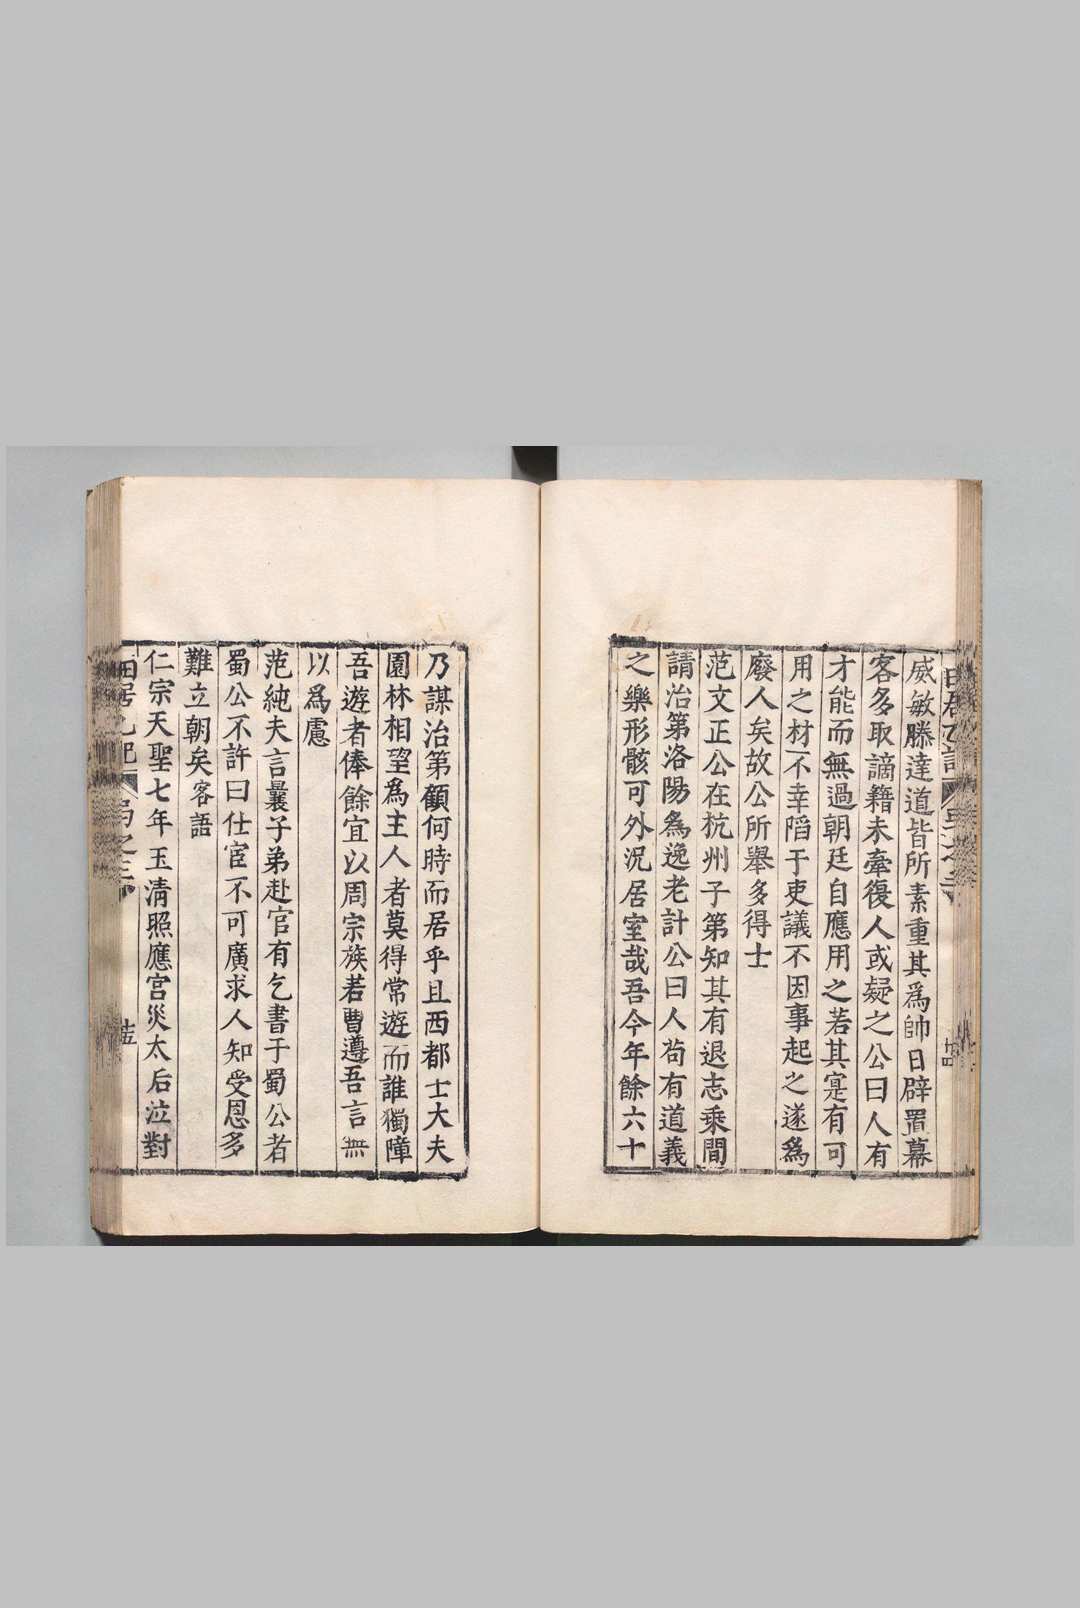 威敏滕達道皆所素重其爲帥日辟置幕
客多取謫籍未牽復人或疑之公曰人有
才能而無過朝廷自應用之若其寔有可
用之材不幸陷于吏議不因事起之遂爲
廢人矣故公所舉多得士
范文正公在杭州子第知其有退志乘間
請治第洛陽爲逸老計公曰人茍有道義
之樂形骸可外況居室哉吾今年餘六十
乃謀治第顧何時而居乎且西都士大夫
園林相望爲主人者莫得常遊而誰獨障
吾遊者俸餘宜以周宗族若曹遵吾言無
以爲慮
范純夫言曩子弟赴官有乞書于蜀公者
蜀公不許曰仕宦不可廣求人知受恩多
難立朝矣客語
仁宗天聖七年玉清照應宮災太后泣對